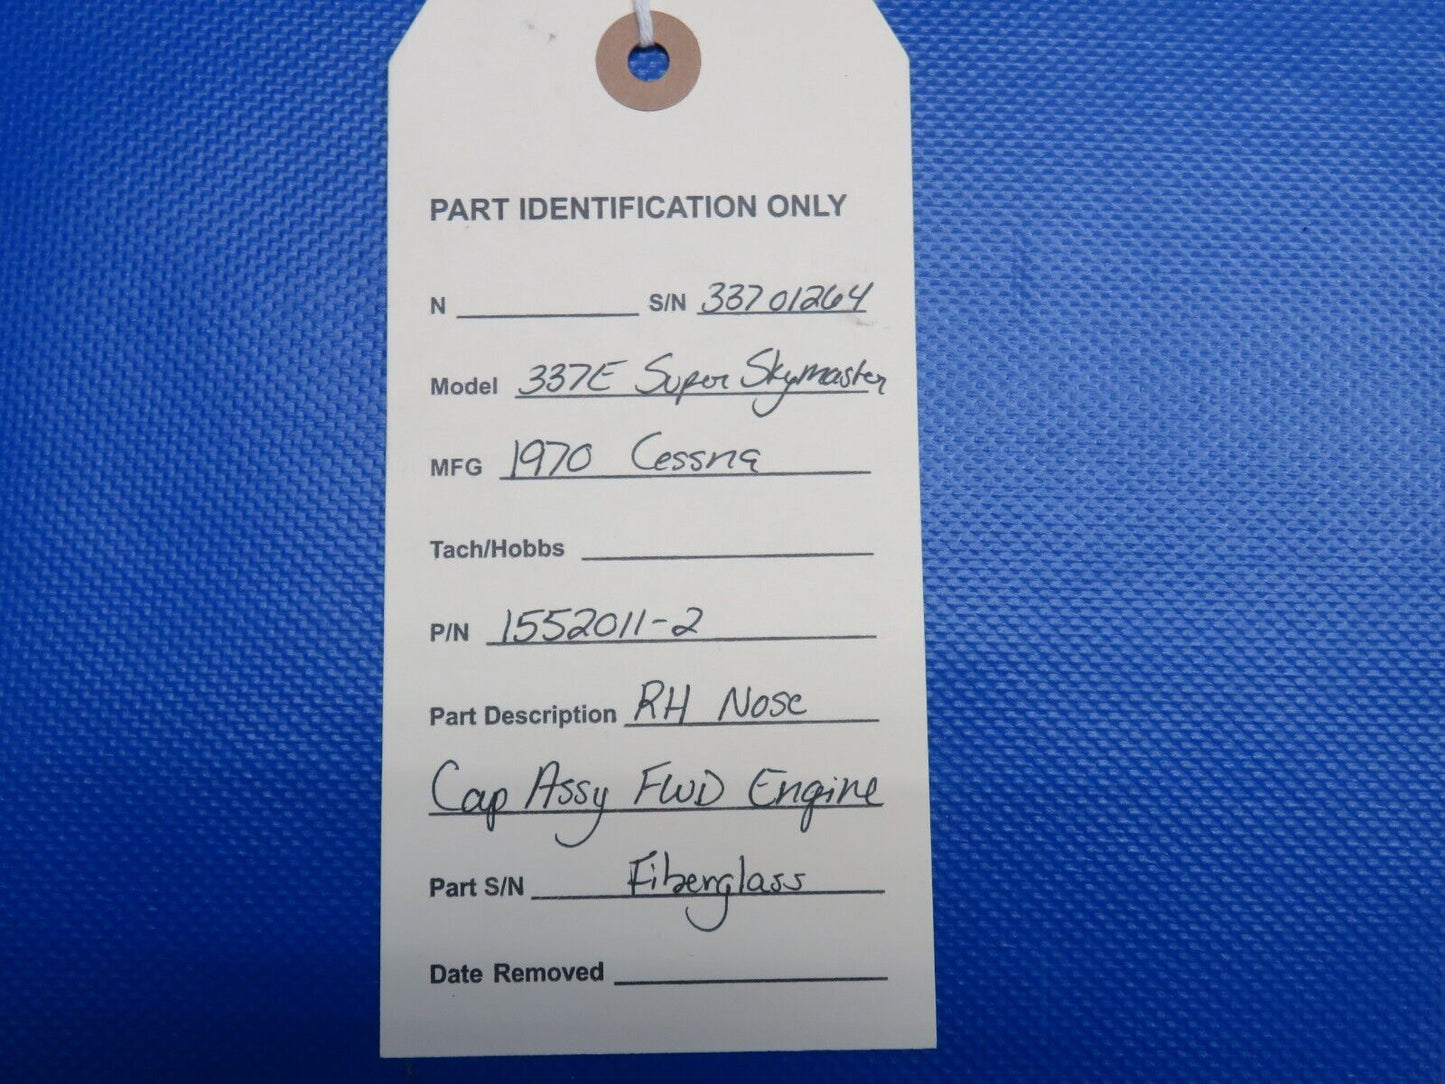 PART IDENTIFICATION ONLY
N S/N 33701264
Model 337E Super Skymaster
MFG 1970 Cessna
Tach/Hobbs
P/N 1552011-2
Part Description RH Nose
Cap Assy FWD Engine
Part S/N Fiberglass
Date Removed